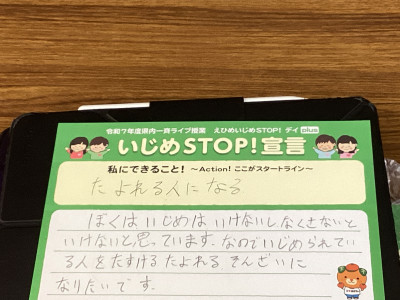 令和7年度県内一斉ライブ授業 えひめいじめSTOP!デイplus
いじめSTOP!宣言
私にできること! ～Action! ここがスタートライン～
たよれる人になる
ぼくはいじめはいけないし、なくさないと
いけないと思っています。なのでいじめられてい
る人をたすけるたよれるそんざいに
なりたいです。